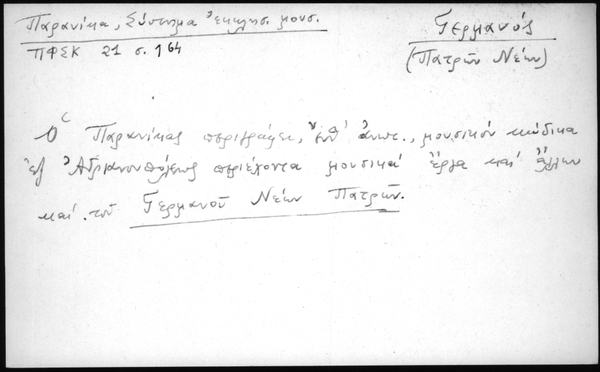 Παρανίκα, Σύστημα ἐκκλησ. μουσ.
ΠΦΣΚ 21 σ. 164
Γερμανός
(Πατρῶν Νέων)
Ὁ Παρανίκας περιγράφει, ἔνθ' ἀνωτ., μουσικόν κώδικα
ἐξ Ἀδριανουπόλεως περιέχοντα μουσικά ἔργα καί ἄλλων
καί τοῦ Γερμανοῦ Νέων Πατρῶν.